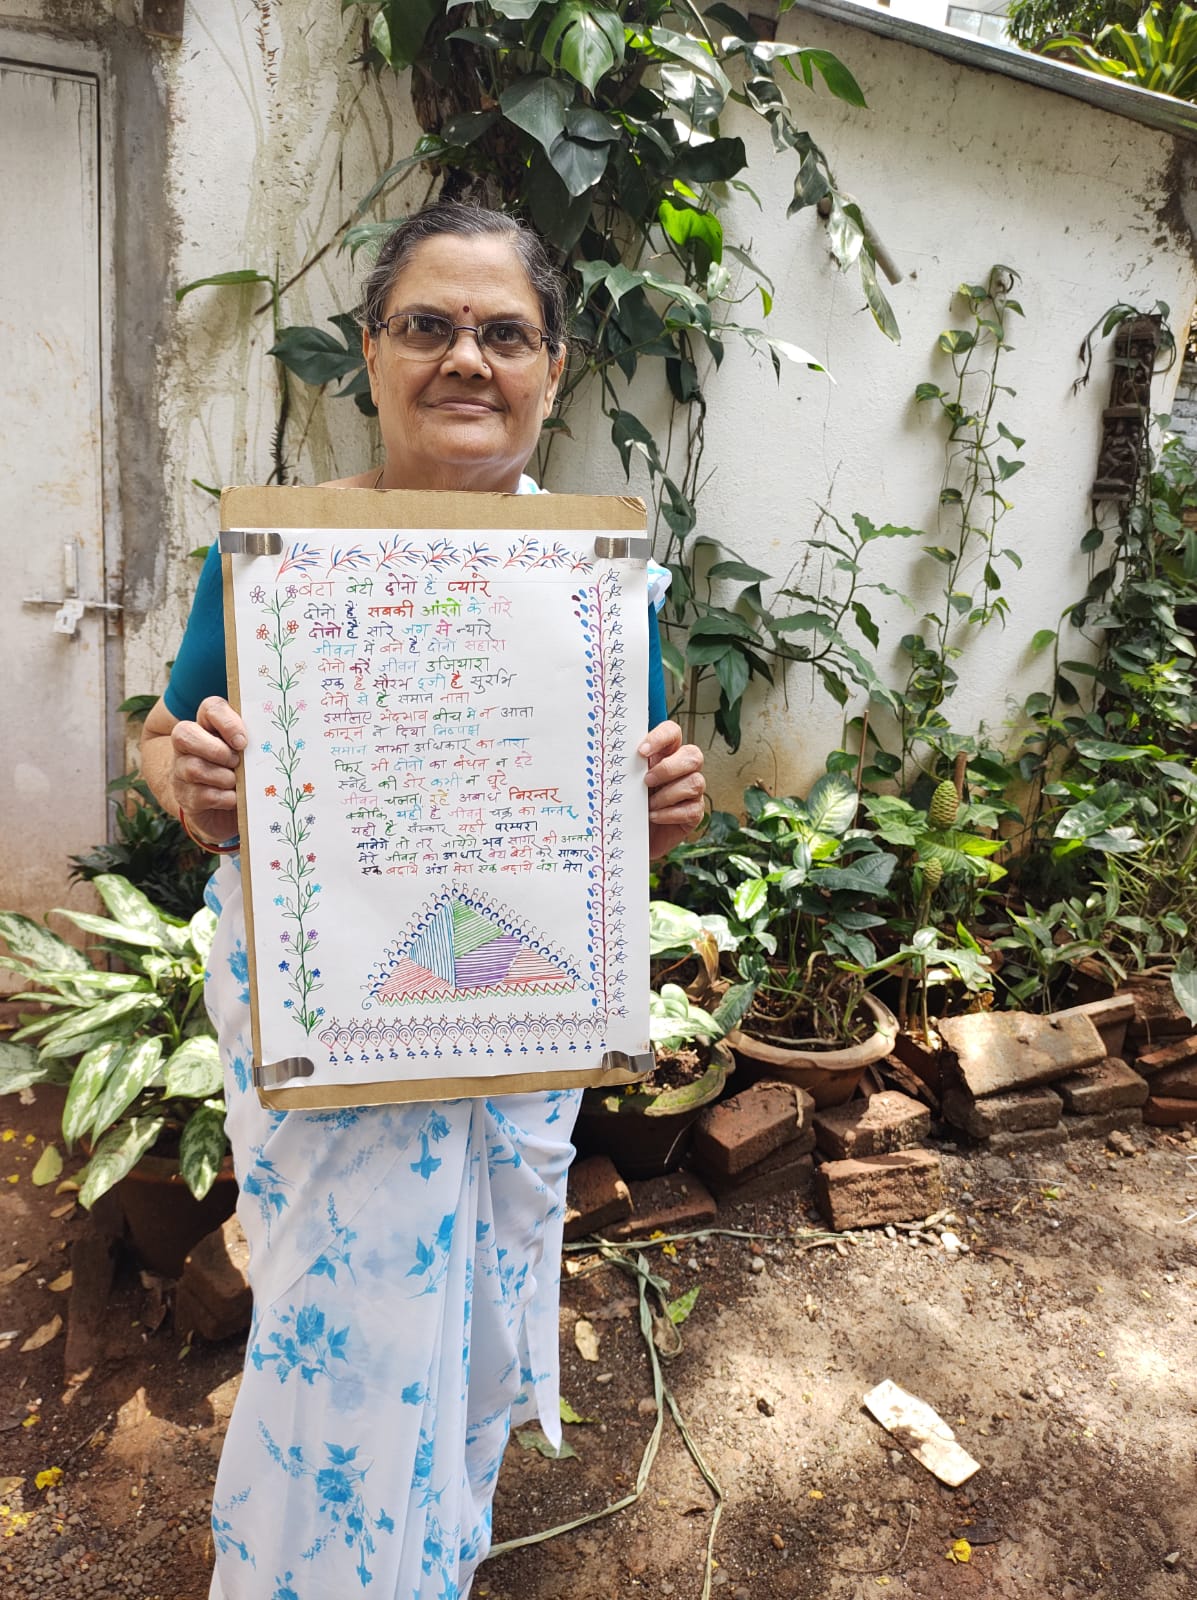 बेटा बेटी दोनो हैं प्यारे
दोनो हैं सबकी आंखो के तारे
दोनों हैं सारे जग से न्यारे
जीवन में बने हैं दोनो सहारा
दोनो करें जीवन उजियारा
एक है सौरभ दूजी है सुरभि
दोनो से है समान नाता
इसलिए भेदभाव बीच मे न आता
कानून ने दिया निष्पक्ष
समान साझा अधिकार का नारा
फिर भी दोनो का बंधन न टूटे
स्नेह की डोर कभी न छूटे
जीवन चलता रहे अबाध निरन्तर
क्योकि यही है जीवन चक्र का मन्तर
यही है संस्कार यही परम्परा
मानेगे तो तर जायेगे भव सागर की अन्तरा
मेरे जीवन का आधार बेटा बेटी करे साकार
एक बढ़ाये अंश मेरा एक बढ़ाये वंश मेरा